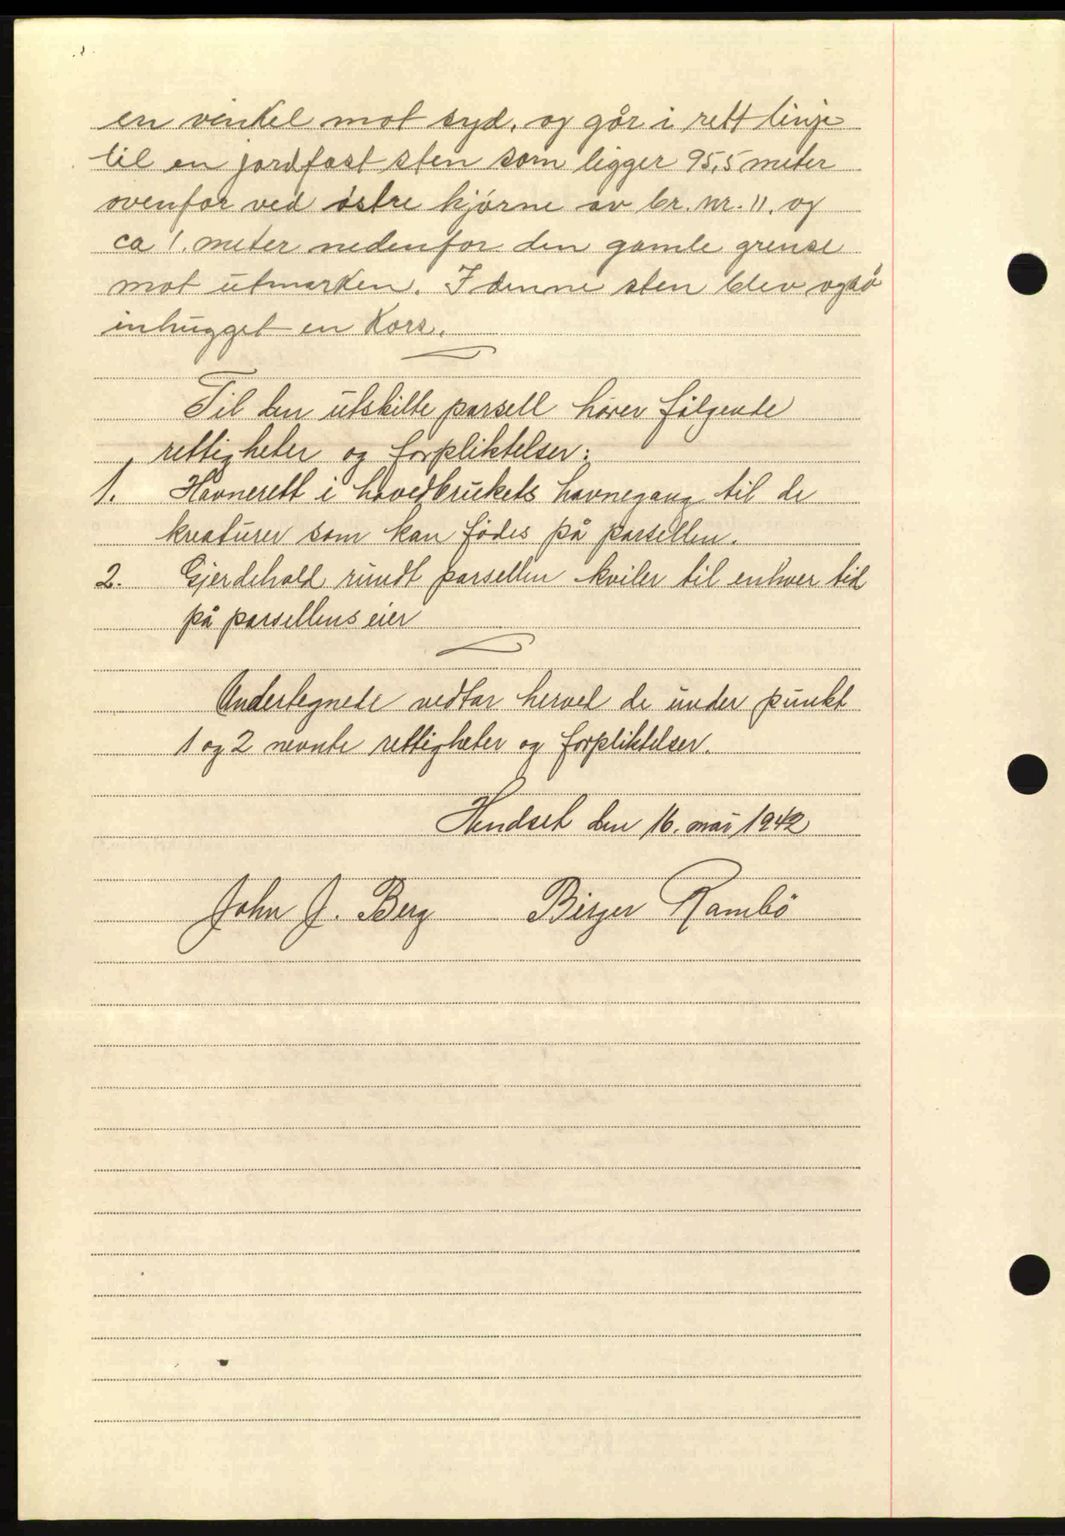 en vinkel mot syd, og går i rett linje
til en jordfast sten som ligger 95,5 meter
ovenfor ved østre hjørne av br. nr. 11, og
ca 1. meter nedenfor den gamle grense
mot utmarken. I denne sten blev også
inhugget en Kors.
Til den utskilte parsell hører følgende
rettigheter og forpliktelser:
1. Havnerett i hovedbrukets havnegang til de
kreaturer som kan födes på parsellen.
2. Gjerdehold rundt parsellen kviler til enhver tid
på parsellens eier
Undertegnede vedtar herved de under punkt
1 og 2 nevnte rettigheter og forpliktelser.
Hendset den 16. mai 1942
John J. Berg Birger Rambö